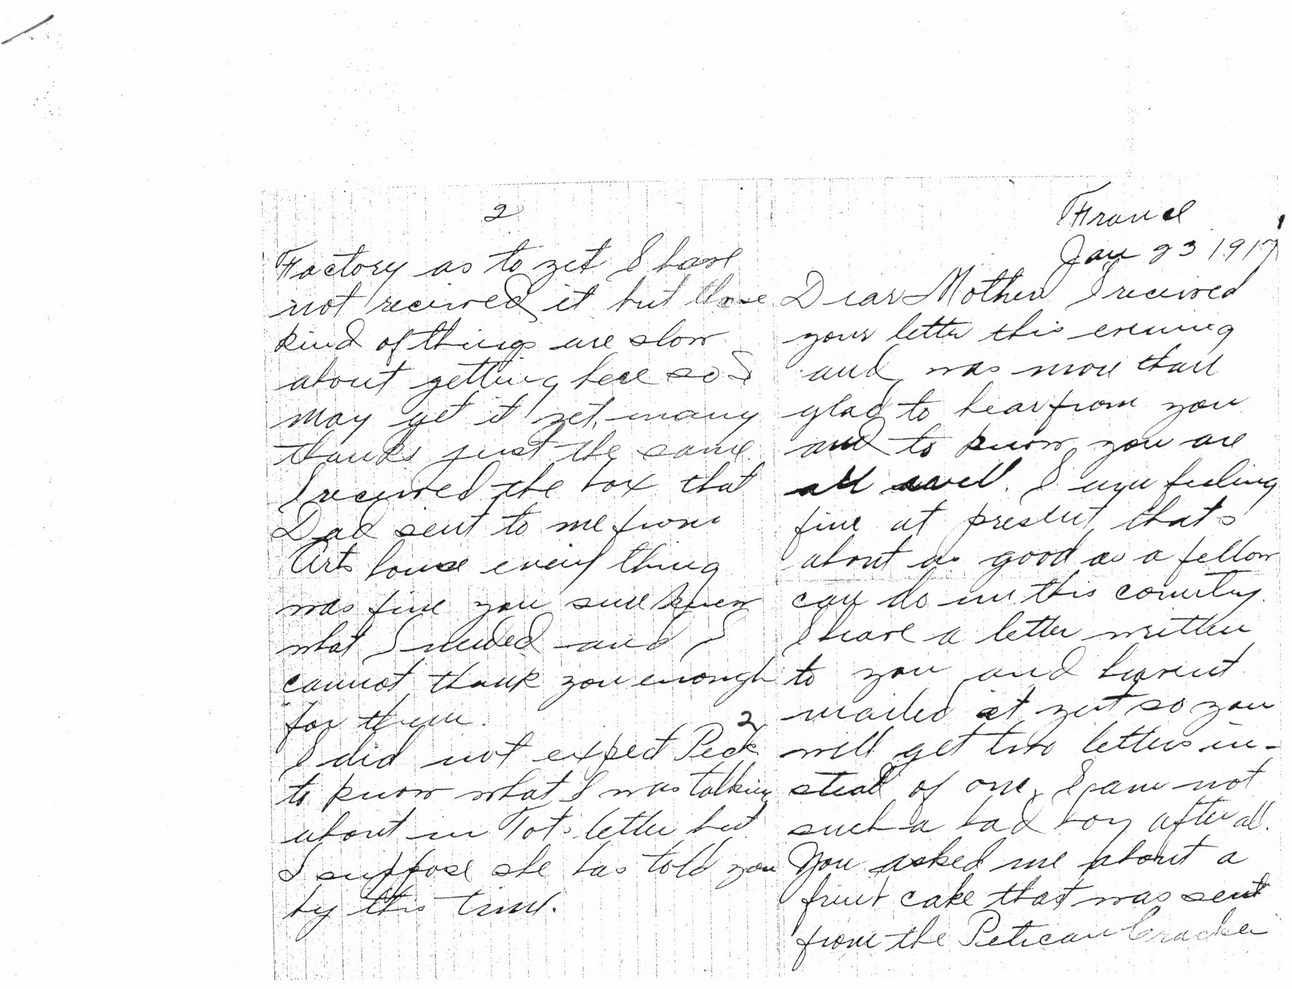 France
Jan 23 1917
Dear Mother I recieved
your letter this evening
and was more than
glad to hear from you
and to know you are
all well. I am feeling
fine at present, thats
about as good as a fellow
can do in this country.
I have a letter written
to you and havent
mailed it yet so you
will get two letters in-
stead of one, I am not
such a bad boy after all.
You asked me about a
fruit cake that was sent
from the Pelican Cracker
2
Factory as to yet I have
not recieved it but those
kind of things are slow
about getting here so I
may get it yet, many
thanks just the same
I recieved the box that
Dad sent to me from
Arts house every thing
was fine you sure knew
what I needed and I
cannot thank you enough
for them.
2
I did not expect Peck
to know what I was talking
about in Tots letter but
I suppose she has told you
by this time.